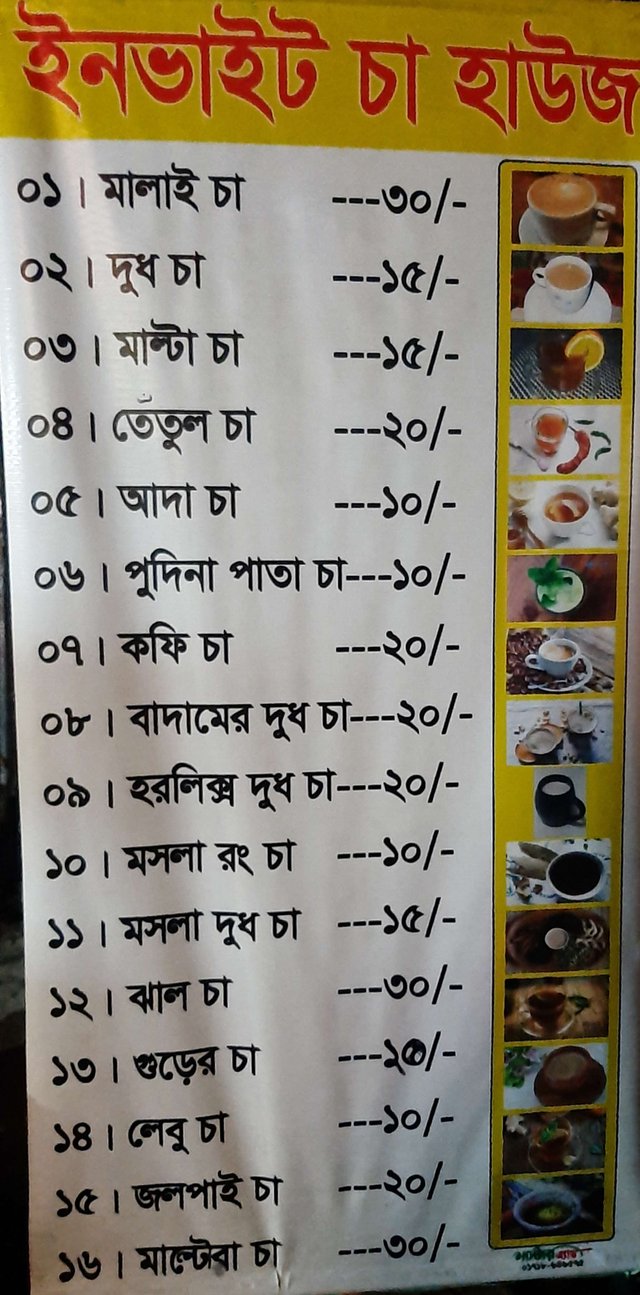 ইনভাইট চা হাউজ
০১। মালাই চা ---৩০/-
০২। দুধ চা ---১৫/-
০৩। মাল্টা চা ---১৫/-
০৪। তেঁতুল চা ---২০/-
০৫। আদা চা ---১০/-
০৬। পুদিনা পাতা চা---১০/-
০৭। কফি চা ---২০/-
০৮। বাদামের দুধ চা---২০/-
০৯। হরলিক্স দুধ চা---২০/-
১০। মসলা রং চা ---১০/-
১১। মসলা দুধ চা ---১৫/-
১২। ঝাল চা ---৩০/-
১৩। গুড়ের চা
১৪। লেবু চা ---১০/-
১৫। জলপাই চা ---২০/-
১৬। মাল্টোবা চা ---৩০/-